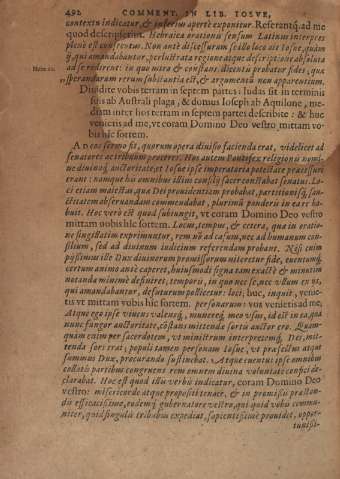 492 COMMENT. IN LIB. IOSVE,
contextu indicatur, & inferius apertè exponitur. Referantq́, ad me
quod descripserint. Hebraica orationis sensum Latinus interpres
plenè est consecutus. Non antè discessurum se illo loco ait Iosue, quàm
ij, qui amandabantur, perlustrata regione atque descriptione absoluta
ad se redirent: in quo mira & constans ducenti probatur fides, quæ
Hebræ. 11. sperandarum rerum substantia est, & argumentū non apparentium.
Diuidite vobis terram in septem partes: Iudas sit in terminis
suis ab Australi plaga, & domus Ioseph ab Aquilone, me-
diam inter hos terram in septem partes describite: & huc
venietis ad me, vt coram Domino Deo vestro, mittam vo-
bis hîc sortem.
Ad eos sermo fit, quorum opera diuisio facienda erat, videlicet ad
senatores ac tribuum proceres. Hos autem Pontifex religionis nomi-
ne diuinaq́; auctoritate, & Iosue ipse imperatoria potestate præcessuri
erant: namque his omnibus illum consilij sacer constabat senatus. Lo-
ci etiam maiestas, qua Dei prouidentiam probabat, partitionisq́; san-
ctitatem obseruandam commendabat, plurimū ponderis in ea re ha-
buit. Hoc verò est quod subiungit, vt coram Domino Deo vestro
mittam vobis hîc sortem. Locus, tempus, & cetera, quæ in oratio-
ne sigillatim exprimuntur, rem nō ad casum, nec ad humanum con-
silium, sed ad diuinum iudicium referendam probant. Nisi enim
pijssimus ille Dux diuinarum promissorum niteretur fide, euentumq́;
certum animo antè caperet, huiusmodi signa tam exactè & minutim
notanda minimè definiret, temporis, in quo nec se, nec vllum ex ys,
qui amandabantur, defuturum pollicetur: loci; huc, inquit, venie-
tis vt mittam vobis hîc sortem. personarum: vos venietis ad me,
Atque ego ipse viuens valensq́, munereq́, meo vsus, id est in ea, qua
nunc fungor auctoritate, cōstans mittenda sortis auctor ero. Quam-
quam enim per sacerdotem, vt ministrum interpretemq́; Dei, mit-
tenda sors erat; populi tamen personam Iosue, vt præfectus atque
summus Dux, procurando sustinebat. Atque euentus ipse omnibus
collatis partibus congruens rem omnem diuina voluntate confici de-
clarabat. Hoc est quod illis verbis indicatur, coram Domino Deo
vestro: misericorde atque propositi tenace, & in promissis præstan-
dis efficacissimo, eodemq́; gubernatore vestro, qui quod vobis commu-
niter, quid singulis tribubus expediat, sapientissimè prouidet, oppor-
tunissi-